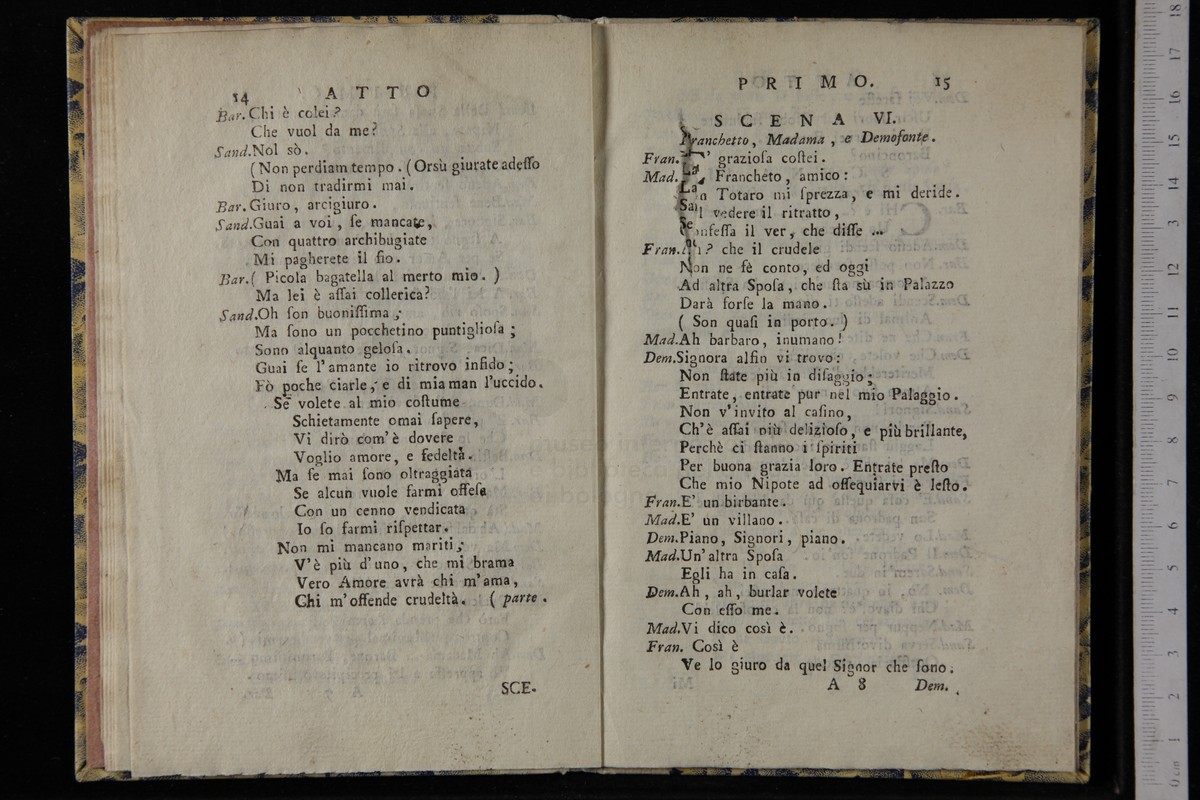 14 ATTO
Bar. Chi è colei?
Che vuol da me?
Sand. Nol sò.
( Non perdiam tempo . ( Orsù giurate adeſſo
Di non tradirmi mai.
Bar. Giuro, arcigiuro.
Sand. Guai a voi, ſe mancate,
Con quattro archibugiate
Mi pagherete il fio.
Bar. ( Picola bagatella al merto mio. )
Ma lei è aſſai collerica?
Sand. Oh ſon buoniſſima;
Ma ſono un pocchetino puntiglioſa;
Sono alquanto geloſa.
Guai ſe l'amante io ritrovo infido;
Fò poche ciarle, e di mia man l'uccido.
Se volete al mio coſtume
Schietamente omai ſapere,
Vi dirò com'è dovere
Voglio amore, e fedeltà.
Ma ſe mai ſono oltraggiata
Se alcun vuole farmi offeſa
Con un cenno vendicata
Io ſo farmi riſpettar.
Non mi mancano mariti;
V'è più d'uno, che mi brama
Vero Amore avrà chi m'ama,
Chi m'offende crudeltà. ( parte .
SCE-
PRIMO. 15
SCENA VI.
Franchetto, Madama, e Demofonte.
Fran. grazioſa coſtei.
Mad. Francheto, amico:
Totaro mi ſprezza, e mi deride.
vedere il ritratto,
il ver, che diſſe ...
Fran. ? che il crudele
Non ne fè conto, ed oggi
Ad altra Spoſa, che ſta sù in Palazzo
Darà forſe la mano.
( Son quaſi in porto. )
Mad. Ah barbaro, inumano!
Dem. Signora alfin vi trovo:
Non ſtate più in diſaggio;
Entrate, entrate pur nel mio Palaggio.
Non v'invito al caſino,
Ch'è aſſai più delizioſo, e più brillante,
Perchè ci ſtanno i ſpiriti
Per buona grazia loro. Entrate preſto
Che mio Nipote ad oſſequiarvi è leſto.
Fran. E' un birbante.
Mad. E' un villano.
Dem. Piano, Signori, piano.
Mad. Un'altra Spoſa
Egli ha in caſa.
Dem. Ah, ah, burlar volete
Con eſſo me.
Mad. Vi dico così è.
Fran. Così è
Ve lo giuro da quel Signor che ſono.
A 8 Dem.